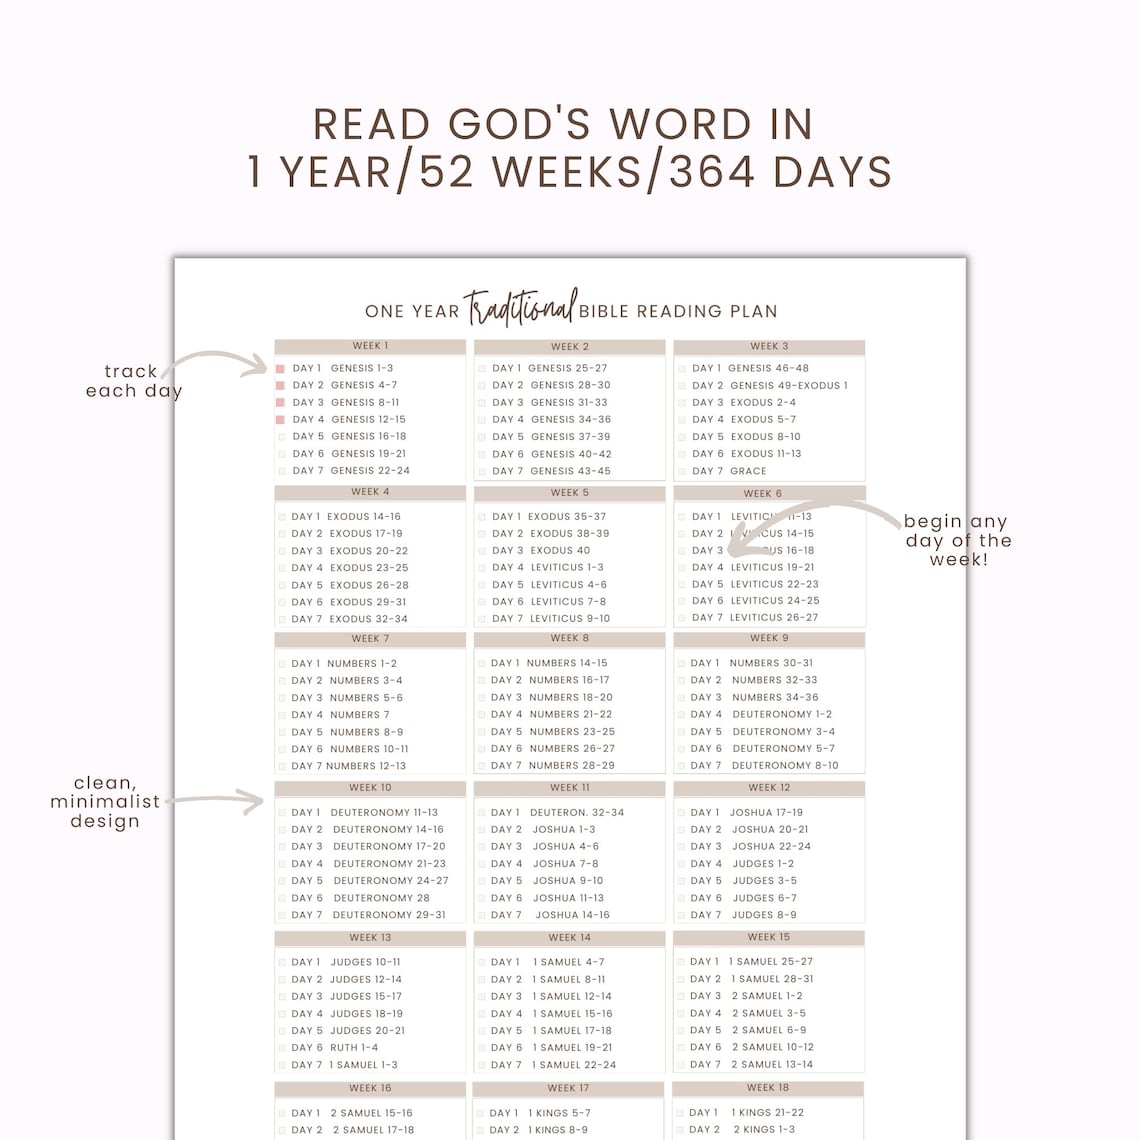 READ GOD'S WORD IN
1 YEAR/52 WEEKS/364 DAYS
ONE YEAR traditional BIBLE READING PLAN
track
each day
WEEK 1
DAY 1 GENESIS 1-3
DAY 2 GENESIS 4-7
DAY 3 GENESIS 8-11
DAY 4 GENESIS 12-15
DAY 5 GENESIS 16-18
DAY 6 GENESIS 19-21
DAY 7 GENESIS 22-24
WEEK 2
DAY 1 GENESIS 25-27
DAY 2 GENESIS 28-30
DAY 3 GENESIS 31-33
DAY 4 GENESIS 34-36
DAY 5 GENESIS 37-39
DAY 6 GENESIS 40-42
DAY 7 GENESIS 43-45
WEEK 3
DAY 1 GENESIS 46-48
DAY 2 GENESIS 49-EXODUS 1
DAY 3 EXODUS 2-4
DAY 4 EXODUS 5-7
DAY 5 EXODUS 8-10
DAY 6 EXODUS 11-13
DAY 7 GRACE
WEEK 4
DAY 1 EXODUS 14-16
DAY 2 EXODUS 17-19
DAY 3 EXODUS 20-22
DAY 4 EXODUS 23-25
DAY 5 EXODUS 26-28
DAY 6 EXODUS 29-31
DAY 7 EXODUS 32-34
WEEK 5
DAY 1 EXODUS 35-37
DAY 2 EXODUS 38-39
DAY 3 EXODUS 40
DAY 4 LEVITICUS 1-3
DAY 5 LEVITICUS 4-6
DAY 6 LEVITICUS 7-8
DAY 7 LEVITICUS 9-10
WEEK 6
DAY 1 LEVITICUS 11-13
DAY 2 LEVITICUS 14-15
DAY 3 16-18
DAY 4 LEVITICUS 19-21
DAY 5 LEVITICUS 22-23
DAY 6 LEVITICUS 24-25
DAY 7 LEVITICUS 26-27
begin any
day of the
week!
WEEK 7
DAY 1 NUMBERS 1-2
DAY 2 NUMBERS 3-4
DAY 3 NUMBERS 5-6
DAY 4 NUMBERS 7
DAY 5 NUMBERS 8-9
DAY 6 NUMBERS 10-11
DAY 7 NUMBERS 12-13
WEEK 8
DAY 1 NUMBERS 14-15
DAY 2 NUMBERS 16-17
DAY 3 NUMBERS 18-20
DAY 4 NUMBERS 21-22
DAY 5 NUMBERS 23-25
DAY 6 NUMBERS 26-27
DAY 7 NUMBERS 28-29
WEEK 9
DAY 1 NUMBERS 30-31
DAY 2 NUMBERS 32-33
DAY 3 NUMBERS 34-36
DAY 4 DEUTERONOMY 1-2
DAY 5 DEUTERONOMY 3-4
DAY 6 DEUTERONOMY 5-7
DAY 7 DEUTERONOMY 8-10
clean,
minimalist
design
WEEK 10
DAY 1 DEUTERONOMY 11-13
DAY 2 DEUTERONOMY 14-16
DAY 3 DEUTERONOMY 17-20
DAY 4 DEUTERONOMY 21-23
DAY 5 DEUTERONOMY 24-27
DAY 6 DEUTERONOMY 28
DAY 7 DEUTERONOMY 29-31
WEEK 11
DAY 1 DEUTERON. 32-34
DAY 2 JOSHUA 1-3
DAY 3 JOSHUA 4-6
DAY 4 JOSHUA 7-8
DAY 5 JOSHUA 9-10
DAY 6 JOSHUA 11-13
DAY 7 JOSHUA 14-16
WEEK 12
DAY 1 JOSHUA 17-19
DAY 2 JOSHUA 20-21
DAY 3 JOSHUA 22-24
DAY 4 JUDGES 1-2
DAY 5 JUDGES 3-5
DAY 6 JUDGES 6-7
DAY 7 JUDGES 8-9
WEEK 13
DAY 1 JUDGES 10-11
DAY 2 JUDGES 12-14
DAY 3 JUDGES 15-17
DAY 4 JUDGES 18-19
DAY 5 JUDGES 20-21
DAY 6 RUTH 1-4
DAY 7 1 SAMUEL 1-3
WEEK 14
DAY 1 1 SAMUEL 4-7
DAY 2 1 SAMUEL 8-11
DAY 3 1 SAMUEL 12-14
DAY 4 1 SAMUEL 15-16
DAY 5 1 SAMUEL 17-18
DAY 6 1 SAMUEL 19-21
DAY 7 1 SAMUEL 22-24
WEEK 15
DAY 1 1 SAMUEL 25-27
DAY 2 1 SAMUEL 28-31
DAY 3 2 SAMUEL 1-2
DAY 4 2 SAMUEL 3-5
DAY 5 2 SAMUEL 6-9
DAY 6 2 SAMUEL 10-12
DAY 7 2 SAMUEL 13-14
WEEK 16
DAY 1 2 SAMUEL 15-16
DAY 2 2 SAMUEL 17-18
WEEK 17
DAY 1 1 KINGS 5-7
DAY 2 1 KINGS 8-9
WEEK 18
DAY 1 1 KINGS 21-22
DAY 2 2 KINGS 1-3